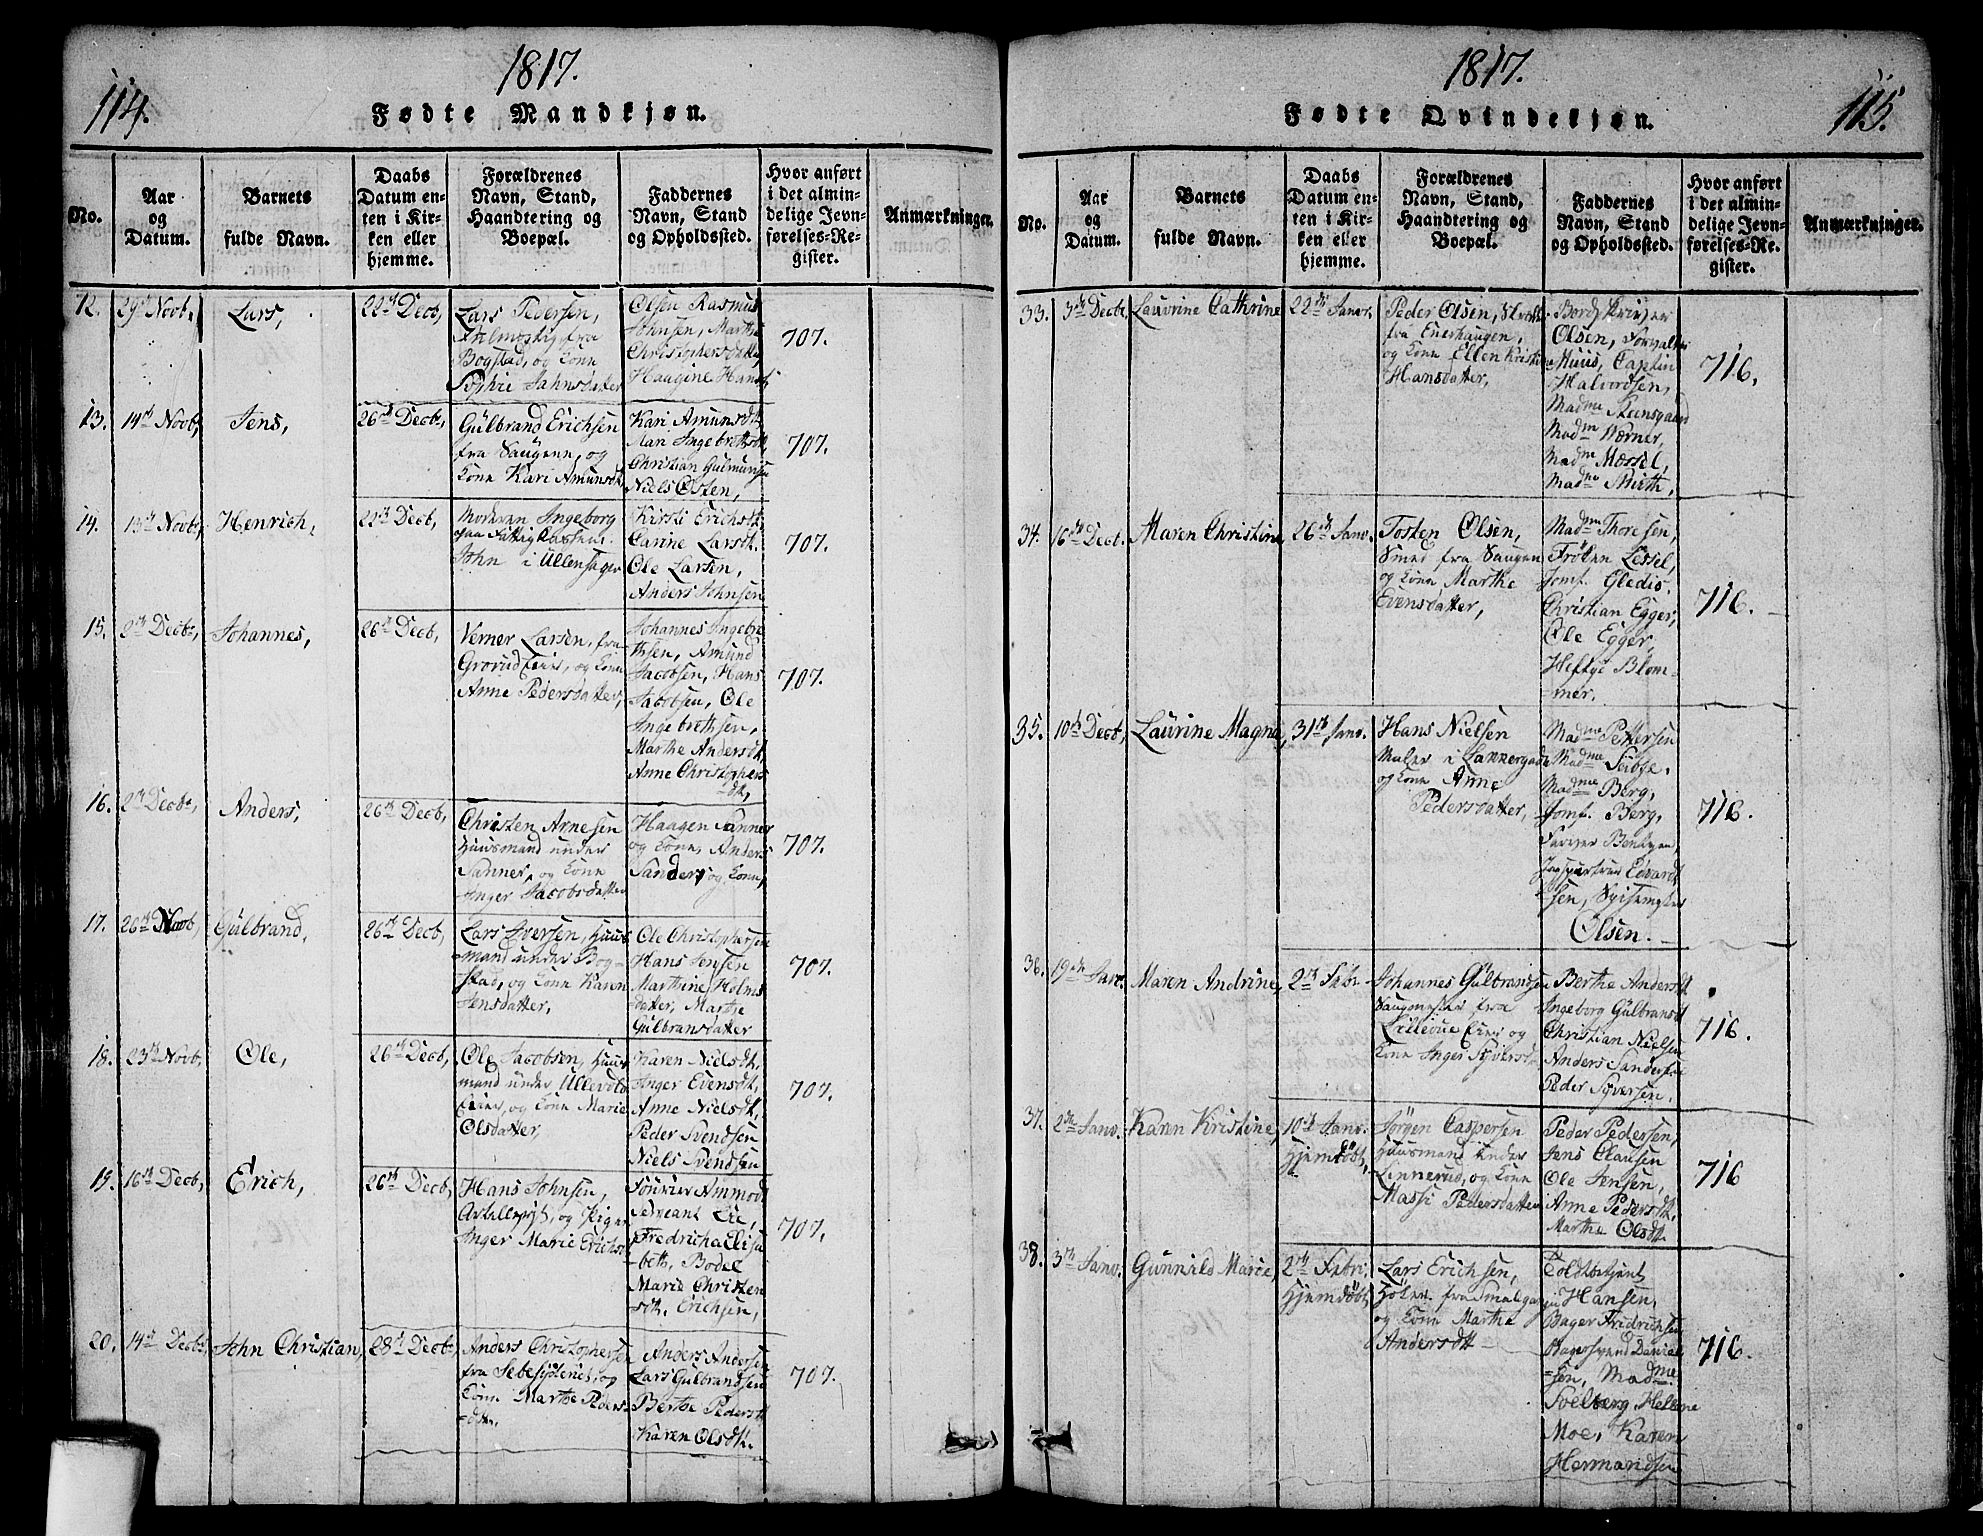 114.
1817.
Fødte Mandkjøn.
No.
Aar
og
Datum.
Barnets
fulde Navn.
Daabs
Datum en-
ten i Kir-
ken eller
hjemme.
Forældrenes
Navn, Stand,
Haandtering og
Boepæl.
Faddernes
Navn, Stand
og Opholdssted.
Hvor anført
i det almin-
delige Jevn-
førelses-Re-
gister.
Anmærkninger.
12.
29de Novb.
Lars,
22de Decb,
Lars Pedersen,
fra
Bogstad, og Kone
Sophie Jahnsdatter
Olsen Rasmus
Johnsen, Marthe
Christophersdatter
Haagine Hansd.
707.
13.
14de Novb,
Jens,
26de Decb,
Gülbrand Erichsen
fra Saugene, og
Kone Kari Amunsdt.
Kari Amunsdt.
Mari Ingebrethsdt.
Christian Gulmunsen
Niels Østen,
707.
14.
15de Novb,
Henrich,
22de Decb,
Moderen Ingeborg
John i Ullensager
Kirsti Erichsdt,
Carine Larsdt.
Ole Larsen,
Anders Johnsen
707.
15.
2den Decbr,
Johannes,
26de Decb,
Verner Larsen, fra
Grorud Eier, og Kone
Anne Pedersdatter,
Johannes Ingebre
thsen, Amund
Jacobsen, Hans
Jacobsen, Ole
Ingebrethsen,
Marthe Andersdt.
Anne Christophers
=dt,
707.
16.
2den Decbr,
Anders,
26de Decb,
Christen Arnesen
Huusmand under
Sanner, og Kone
Inger Jacobsdatter
Haagen Sanner
og Kone, Anders
Sander, og Kone,
707.
17.
26de Novb,
Gülbrand,
26de Decb,
Lars Iversen, Huus
mand under Bog-
stad, og Kone Karen
Jensdatter,
Ole Christophersen
Hans Jensen
Marthine Holms
=datter, Marthe
Gülbransdatter
707.
18.
23de Novb,
Ole,
26de Decb,
Ole Jacobsen, Huus
mand under Ullevold
Eier, og Kone Marie
Olsdatter,
Karen Nielsdt,
Inger Evensdt,
Anne Nielsdt,
Peder Svendsen
Niels Svendsen
707.
19.
16de Decb,
Erich,
26de Decb,
Hans Johnsen,
Artillerist, og Pigen
Inger Marie Erichsd
Fourier Ammodt
Serjeant Lie,
Fredricha Elisa
=beth, Bodel
Marie Christen
sdt, Erichsen,
707.
20.
14de Decbr,
John Christian,
28de Decbr,
Anders Christophersen
fra
Kone Marthe Peders
=dtter.
Anders Andersen
Lars Gülbrandsen
Berthe Pedersdt
Karen Olsdt.
707.
1817.
115.
Fødte Qvindekjøn.
No.
Aar
og
Datum.
Barnets
fulde Navn.
Daabs
Datum en-
ten i Kir-
ken eller
hjemme.
Forældrenes
Navn, Stand,
Haandtering og
Boepæl.
Faddernes
Navn, Stand
og Opholdssted.
Hvor anført
i det almin-
delige Jevn-
førelses-Re-
gister.
Anmærkninger.
33.
3de Decbr
Laurine Cathrine
22de Janvr.
Peder Olsen,
fra Enerhaugen,
og Kone Ellen Kristine
Hansdatter,
Bordskriver
Olsen,
Muus, Captin
Halvordsen,
Madme Steensgaard
Madm Værner,
Madme Messel,
Madme Mürth,
716.
34.
16de Decbr.
Maren Christine,
26de Janv.
Tosten Olsen,
Smed fra Saugene
og Kone Marthe
Evensdatter,
Madme Thoresen,
Frøken Lessel,
Jomf. Gledis.
Christian Egger,
Ole Egger,
Heftye Blom-
=mer.
716.
35.
10de Decb,
Laurine Magna,
31de Janv.
Hans Nielsen
Maler i Lakkergade
og Kone Anne
Pedersdatter,
Madme Pettersen
Madme Seibøe.
Madme Berg,
Jomf. Berg,
Farver
Edvard
sen,
Olsen.
716.
36.
19de Janv.
Maren Andrine,
2den Febr.
Johannes Gülbrandsen
Saugmester fra
Lillevue Eier og
Kone Inger Syversdt
Berthe Andersdt
Ingeborg Gülbransdt
Christian Nielsen
Anders Sandersen
Peder Syversen.
716.
37.
2den Janv.
Karen Kristine,
10de Janv.
Hjemdöbt,
Jørgen Caspersen
Huusmand under
Linnerud, og Kone
Massi Pedersdatter
Peder Pedersen,
Jens Clausen
Ole Jensen,
Anne Pedersdt,
Marthe Olsdt.
716
38.
3de Janv.
Gunnild Marie,
2den Febr.
Hjemdöbt,
Lars Erichsen,
Höker fra Smalgangen
og Kone Marthe
Andersdt
Toldbetjent
Hansen,
Bager Fridrichsen
Bagersvend Daniel
=sen, Madme.
Solberg Hellene
Moe, Karen
Hermandsen
716.